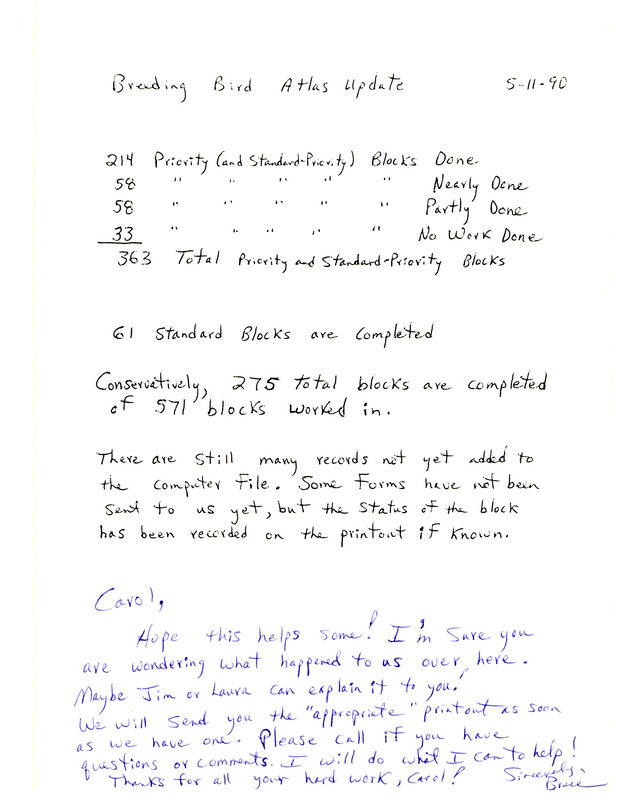 Breeding Bird Atlas Update 5-11-90
214 Priority (and Standard-Priority) Blocks Done
58 " " " " " Nearly Done
58 " " " " " Partly Done
33 " " " " " No Work Done
363 Total Priority and Standard-Priority Blocks
61 Standard Blocks are completed
Conservatively, 275 total blocks are completed
of 571 blocks worked in.
There are still many records not yet added to
the computer file. Some forms have not been
sent to us yet, but the status of the block
has been recorded on the printout if known.
Carol,
Hope this helps some! I'm sure you
are wondering what happened to us over here.
Maybe Jim or Laura can explain it to you!
We will send you the "appropriate" printout as soon
as we have one. Please call if you have
questions or comments. I will do what I can to help!
Thanks for all your hard work, Carol! Sincerely,
Bruce